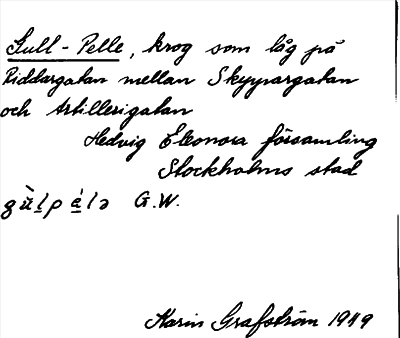 Gull-Pelle, krog som låg på
Riddargatan mellan Skeppargatan
och Artillerigatan
Hedvig Eleonora församling
Stockholms stad
G.W.
Karin Grafström 1919